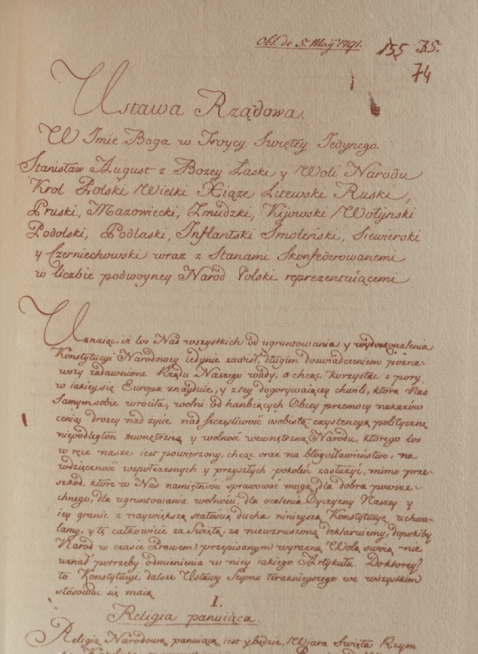 Obl. de 5. Maij 1791.
155 35.
74
Ustawa Rządowa.
W Imie Boga w Troycy Swiętey Jedynego.
Stanisław August z Bozey Łaski y Woli Narodu
Krol Polski, Wielki Xiąze Litewski, Ruski,
Pruski, Mazowiecki, Zmudzki, Kijowski, Wołyński
Podolski, Podlaski, Inflantski, Smoleński, Siewierski
y Czerniechowski wraz z Stanami Skonfederowanemi
w liczbie podwoyney Naród Polski reprezentuiącemi
Uznaiąc, iż los Nas wszystkich od ugruntowania y wydoskonalenia
Konstytucyi Narodowey iedynie zawisł, długim doswiadczeniem pozna-
wszy zadawnione Rządu Naszego wady, a chcąc korzystać z pory,
w iakiey się Europa znayduie, y z tey dogorywaiącey chwili, ktora Nas
Samym sobie wrocila, wolni od hanbiących Obcey przemocy nakazow
ceniąc drozey nad zycie, nad szczęsliwosc osobistą, exystencyą polityczną
niepodległosc zewnętrzną y wolnosc wewnętrzną Narodu, ktorego los
w ręce nasze iest powierzony, chcąc oraz na błogosławienstwo, na
wdzięcznosc wspołczesnych y przyszłych pokolen zasłuzyc, mimo prze-
szkod, ktore w Nas namiętnosci sprawować mogą, dla dobra powsze-
chnego, dla ugruntowania wolnosci, dla ocalenia Oyczyzny Naszey y
iey granic z naywiększą stałoscią ducha ninieyszą Konstytucyę uchwa-
lamy, y tę całkowicie za Swiętą, za niewzruszoną deklaruiemy, dopokiby
Narod w czasie Prawem przepisanym wyrazną Wolą swoią nie
uznał potrzeby odmienienia w niey iakiego Artykułu. Do ktorey
to Konstytucyi, dalsze Ustawy Seymu teraznieyszego we wszystkim
stosowac się maią.
I.
Religia panuiąca.
Religią Narodową panuiącą iest y będzie, Wiara Swięta Rzym-